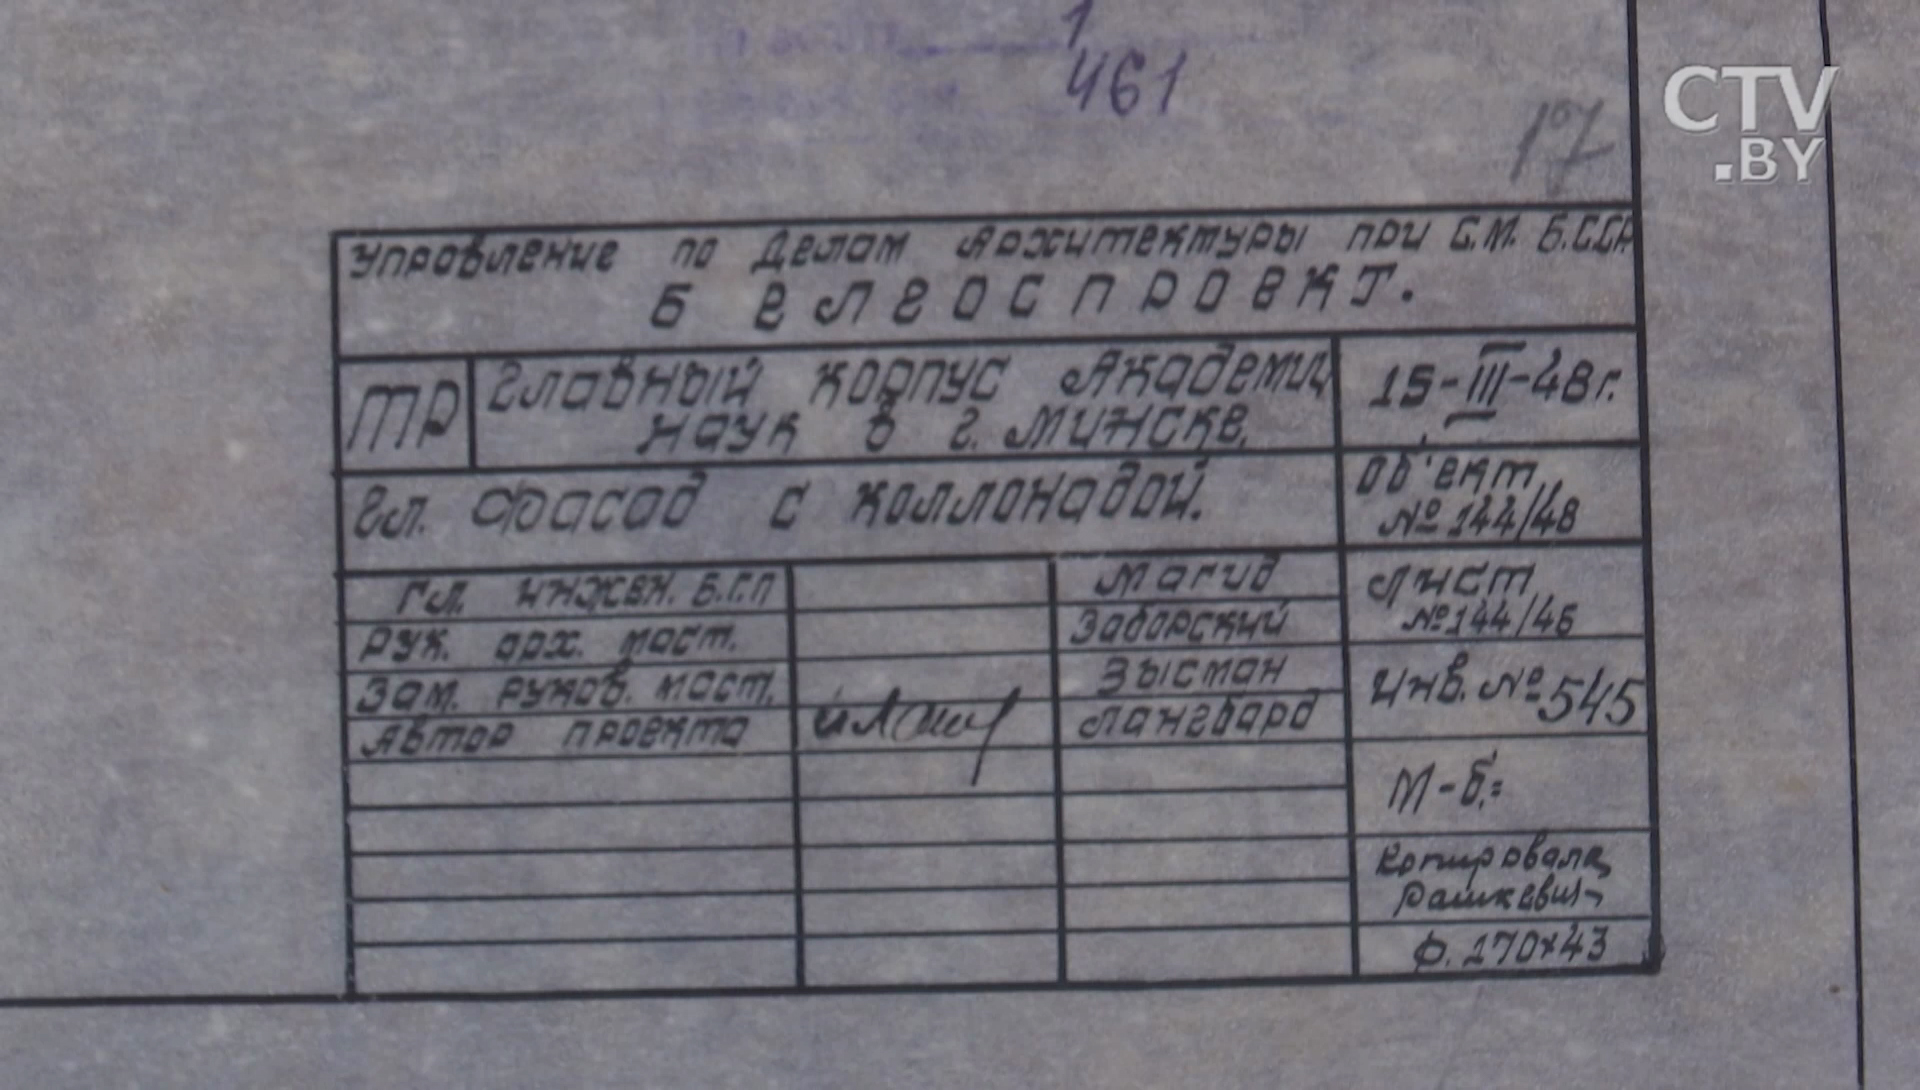 1
461
17
CTV
.BY
Управление по Делам Архитектуры при С.М. Б.ССР
Белгоспроект.
ТР
Главный корпус Академии
наук в г. Минске.
15-III-48г.
Гл. Фасад с коллонадой.
Об'ект
№ 144/48
Гл. инжен. Б.Г.П
Магид
Лист
№ 144/46
Рук. арх. маст.
Заборский
Зам. руков. маст.
Зысман
Инв. № 545
Автор проекта
Лангбард
М-б:=
Копировала
Рашкевич
Ф. 170×43